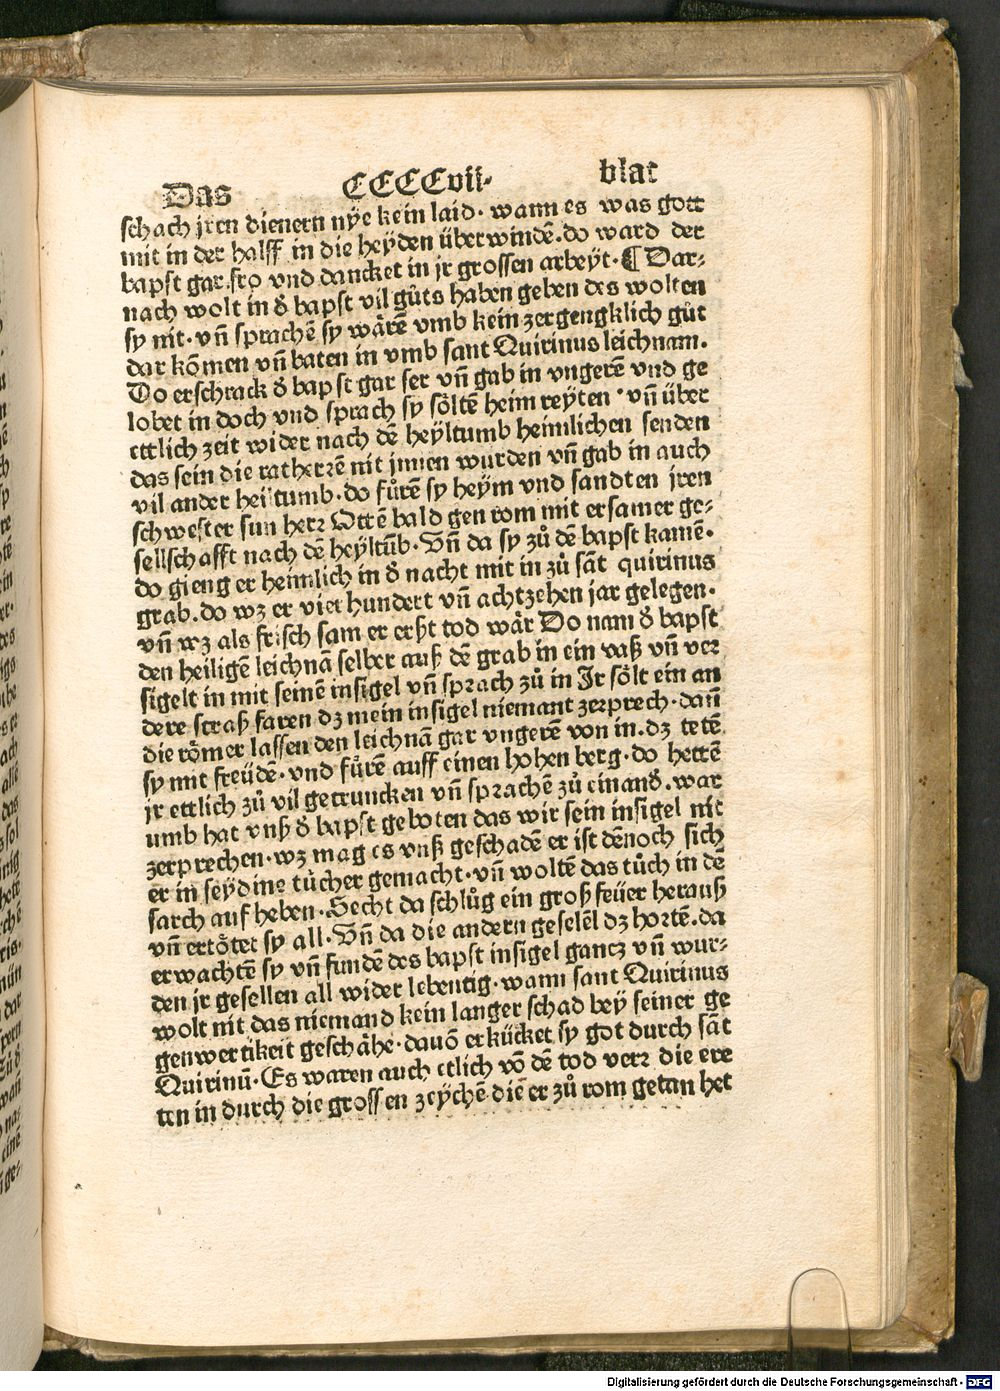 Das CCCCvii· blat
schach jren dienern nye kein laid· wann es was gott
mit in der halff in die heyden überwindē. do ward der
bapst gar fro vnd dancket in jr grossen arbeyt· ¶ Dar⸗
nach wolt in ð bapst vil gůts haben geben des wolten
sy nit· vn̄ sprachē sy wärē vmb kein zergengklich gůt
dar kōmen vn̄ baten in vmb sant Quirinus leichnam.
Do erschrack ð bapst gar ser vn̄ gab in vngerē vnd ge
lobet in doch vnd sprach sy söltē heim reyten · vn̄ über
ettlich zeit wider nach dē heyltumb heimlichen senden
das sein die ratherrē nit jnnen wurden vn̄ gab in auch
vil ander heiltumb· do fůrē sy heym vnd sandten jren
schwester sun herr Ottē bald gen rom mit ersamer ge⸗
sellschafft nach dē heyltūb· Vn̄ da sy zů dē bapst kamē·
do gieng er heimlich in ð nacht mit in zů sāt quirinus
grab. do wz er vier hundert vn̄ achtzehen jar gelegen·
vn̄ wz als frisch sam er erst tod wär Do nam ð bapst
den heiligē leichnā selber auß dē grab in ein vaß vn̄ ver
sigelt in mit seinē insigel vn̄ sprach zů in Ir sölt ein an
dere straß faren dz mein insigel niemant zerprech· dan̄
die römer lassen den leichnā gar vngerē von in. dz tetē
sy mit freüdē· vnd fůrē auff einen hohen berg· do hettē
jr ettlich zů vil getruncken vn̄ sprachē zů einanð. war
umb hat vnß ð bapst geboten das wir sein insigel nit
zerprechen· wz mag es vnß geschadē er ist dēnoch sich
er in seydine tücher gemacht· vn̄ woltē das tůch in dē
sarch auf heben· Secht da schlůg ein groß feüer herauß
vn̄ ertötet sy all· Vn̄ da die andern geselēl dz hortē. da
erwachtē sy vn̄ fundē des bapst insigel gancz vn̄ wur⸗
den jr gesellen all wider lebentig· wann sant Quirinus
wolt nit das niemand kein langer schad bey seiner ge
genwertikeit geschähe· dauō erkücket sy got durch sāt
Quirinū· Es waren auch ettlich vō dē tod verr die ere
ten in durch die grossen zeychē die er zů rom getan het
Digitalisierung gefördert durch die Deutsche Forschungsgemeinschaft - DFG